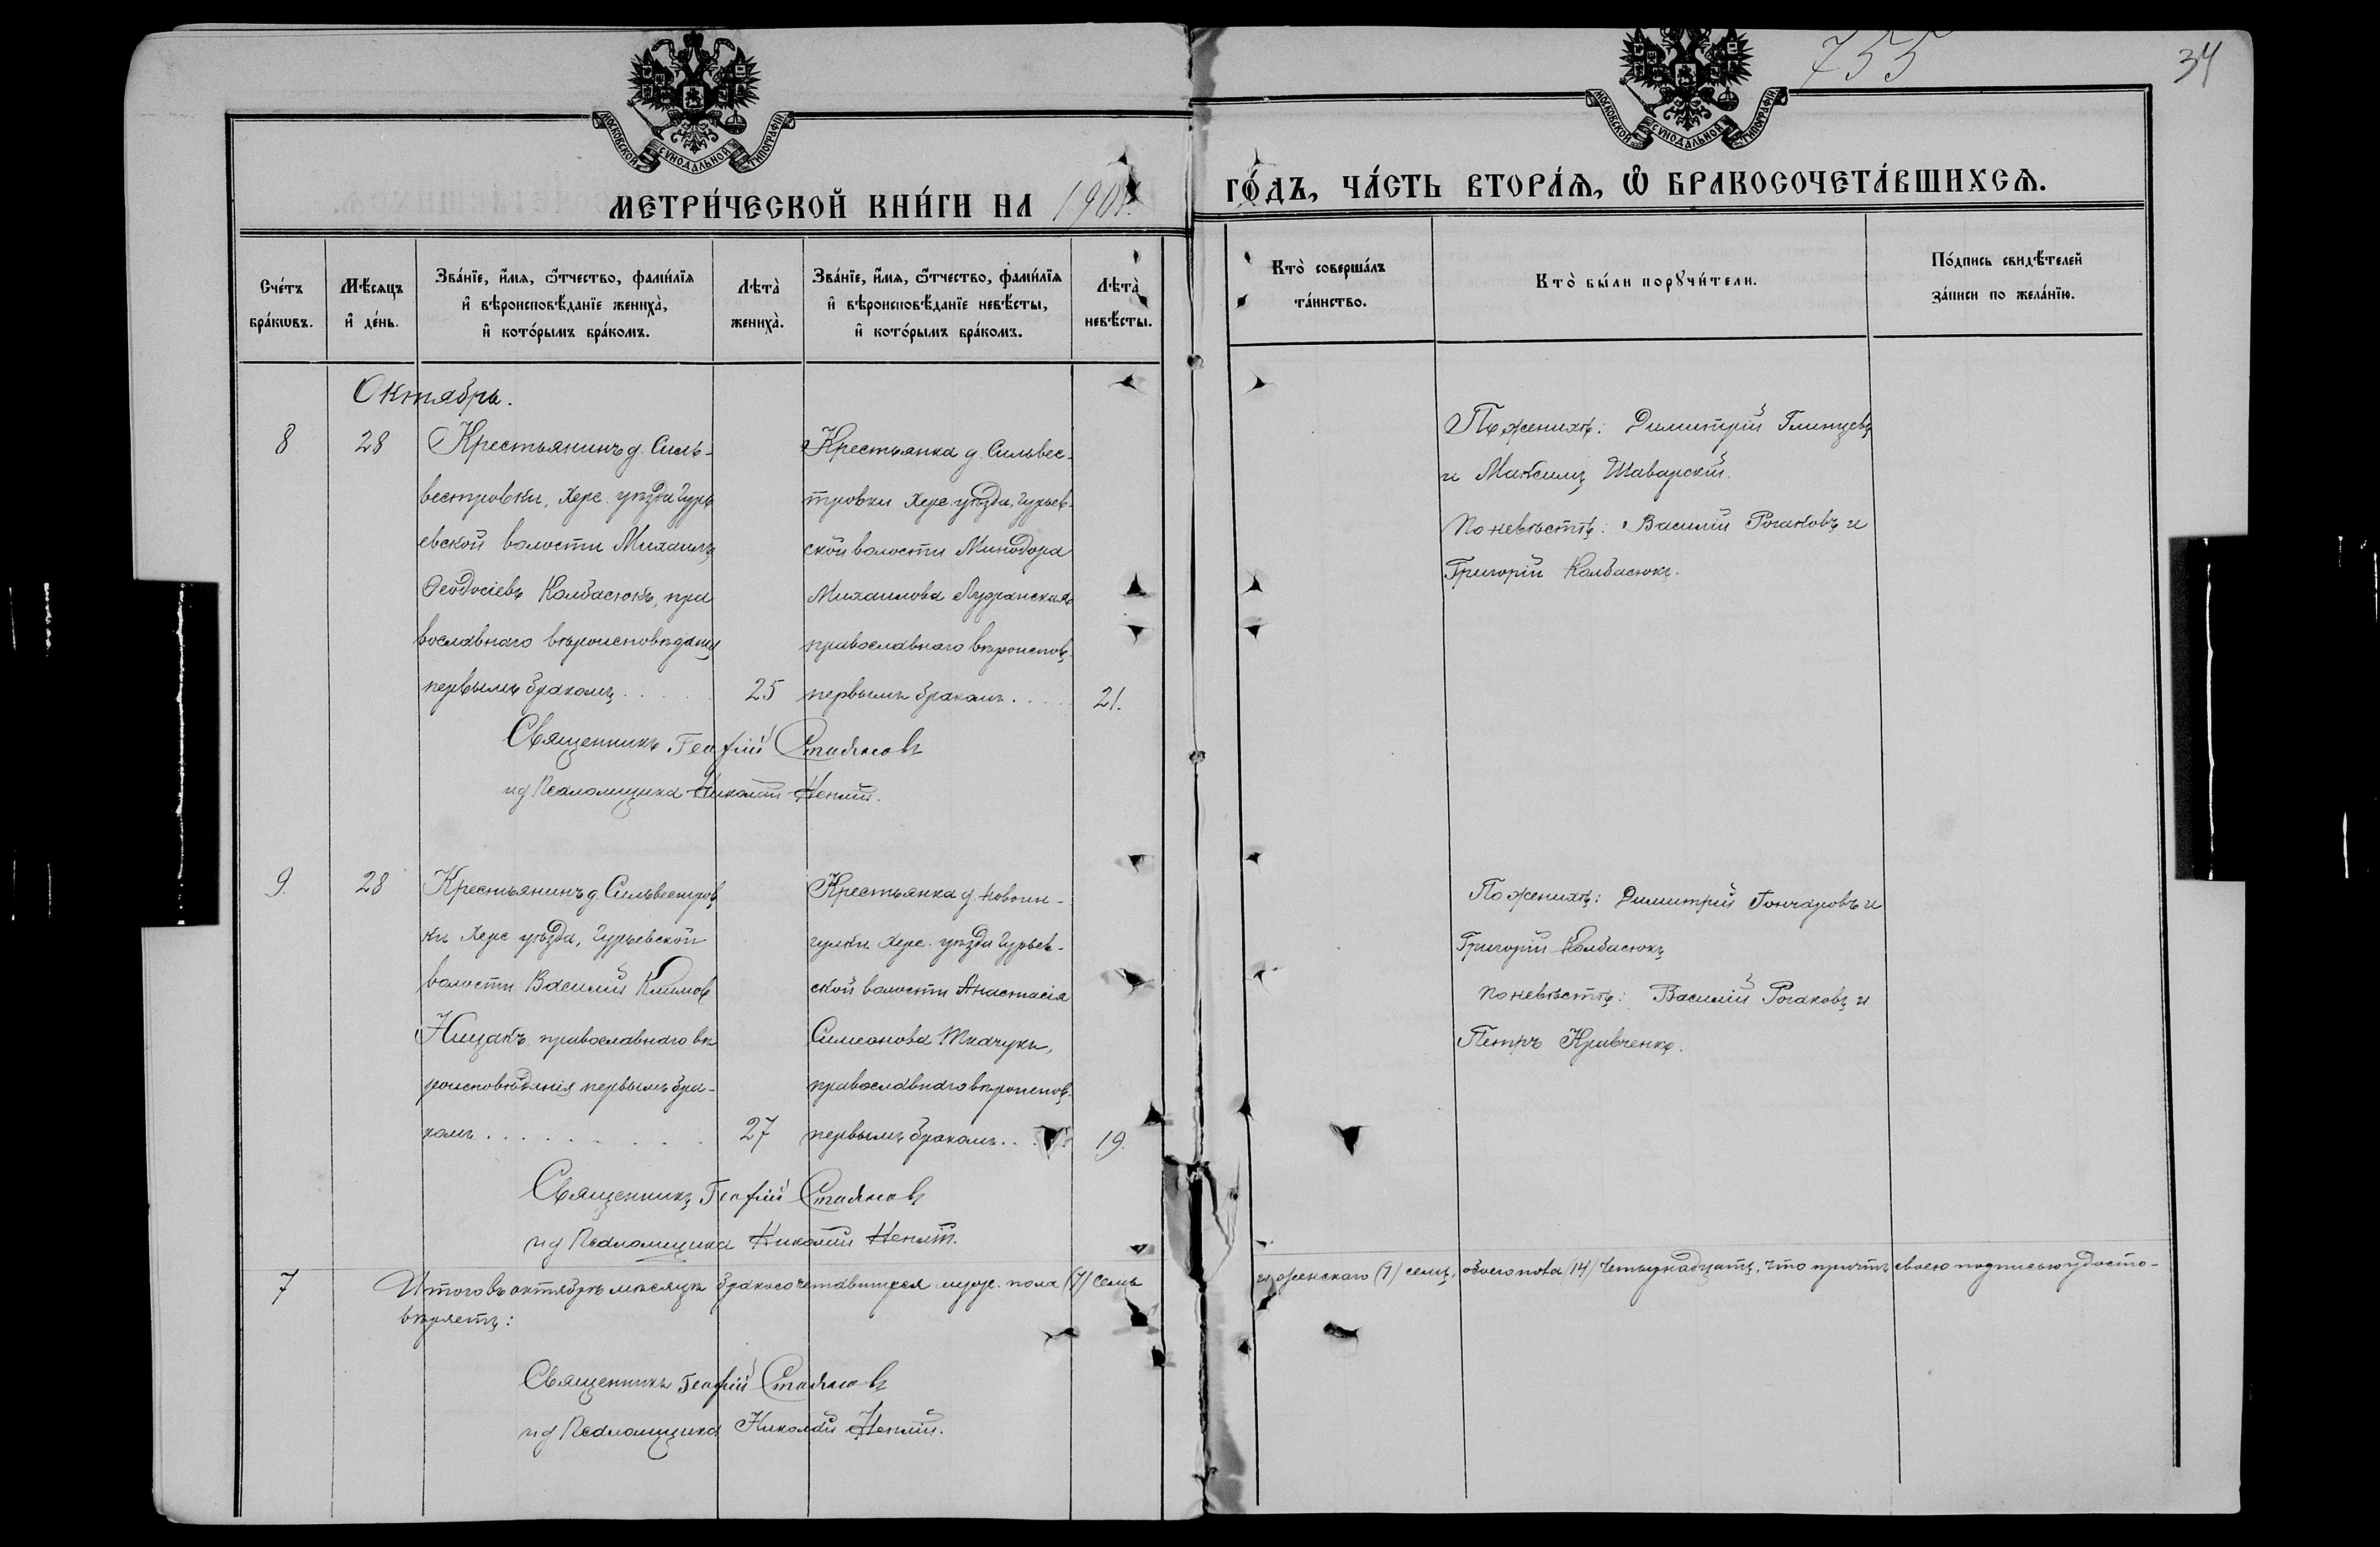 755
34
МОСКОВСКОЙ СѴНОДАЛЬНОЙ ТИПОГРАФІИ
МОСКОВСКОЙ СѴНОДАЛЬНОЙ ТИПОГРАФІИ
МЕТРИ́ЧЕСКОЙ КНИ́ГИ НА 1904.
ГО́ДЪ, ЧА́СТЬ ВТОРА́Ѧ, Ѽ БРАКОСОЧЕТА́ВШИХСѦ.
Сче́тъ бра́кѡвъ.
Мѣ́сяцъ и҆ де́нь.
Зва́нїе, и҆́мя, ѻ҆́тчество, фами́лїя
и҆ вѣроисповѣ́данїе жениха̀,
и҆ кото́рымъ бра́комъ.
Лѣта̀ жениха̀.
Зва́нїе, и҆́мя, ѻ҆́тчество, фами́лїя
и҆ вѣроисповѣ́данїе невѣ́сты,
и҆ кото́рымъ бра́комъ.
Лѣта̀ невѣ́сты.
Кто̀ соверша́лъ та́инство.
Кто̀ бы́ли порꙋчи́тели.
По́дпись свидѣ́телей
за́писи по жела́нїю.
Октябрь.
8
28
Крестьянинъ д. Силь-
вестровки, Херс. уѣзда Гурь
евской волости Михаилъ
Ѳеодосіевъ Колбасюкъ, пра
вославнаго вѣроисповѣданія
первымъ бракомъ . . . . .
25
Крестьянка д. Сильвес-
тровки Херс. уѣзда, Гурьев-
ской волости Минодора
Михаилова
православнаго вѣроисповѣ.
первымъ бракомъ . . . .
21.
По женихѣ: Димитрій
и Максимъ Шаварскій.
По невѣстѣ: Василій Рогаковъ и
Григорій Колбасюкъ.
Священникъ Георгій Стояновъ
и д Псаломщика Николай
9
28
Крестьянинъ д. Сильвестров
ки Херс уѣзда, Гурьевской
волости Василій Климов
Ницакъ, православнаго вѣ
роисповѣданія первымъ бра-
комъ . . . . . . . . .
27
Крестьянка д. Новоин-
гулки Херс. уѣзда Гурьев-
ской волости Анастасія
Симеонова Ткачукъ,
православнаго вѣроисповѣ.
первымъ бракомъ . . .
19.
По женихѣ: Димитрій Гончаровъ и
Григорій Колбасюкъ
По невѣстѣ: Василій Рогаковъ и
Петръ Кравченко.
Священникъ Георгій Стояновъ
и д Псаломщика Николай
7
Итого въ октябрѣ мѣсяцѣ бракосочетавшихся муж. пола (7) семь
и женскаго (7) семь, обоего пола (14) четырнадцать, что причтъ своею подписью удосто-
вѣряетъ:
Священникъ Георгій Стояновъ
и д Псаломщика Николай